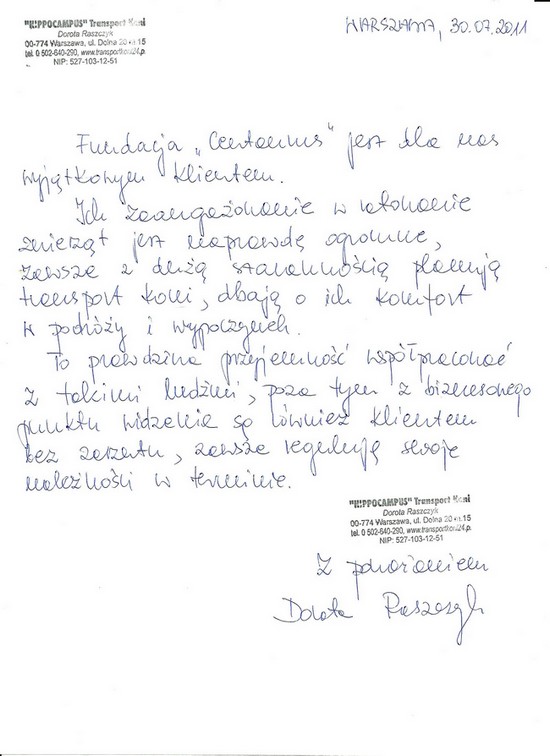 "HIPPOCAMPUS" Transport Koni
Dorota Raszczyk
00-774 Warszawa, ul. Dolna 20 m.15
tel. 0 502-640-290, www.transportkoni24.p
NIP: 527-103-12-51
WARSZAWA, 30.07.2011
Fundacja „Centaurus" jest dla nas
wyjątkowym klientem.
Ich zaangażowanie w ratowanie
zwierząt jest naprawdę ogromne,
zawsze z dużą starannością planują
transport koni, dbają o ich komfort
w podróży i wypoczynek.
To prawdziwa przyjemność współpracować
z takimi ludźmi, poza tym z biznesowego
punktu widzenia są również klientem
bez zarzutu, zawsze regulują swoje
należności w terminie.
"HIPPOCAMPUS" Transport Koni
Dorota Raszczyk
00-774 Warszawa, ul. Dolna 20 m.15
tel. 0 502-640-290, www.transportkoni24.p
NIP: 527-103-12-51
Z poważaniem
Dorota Raszczyk